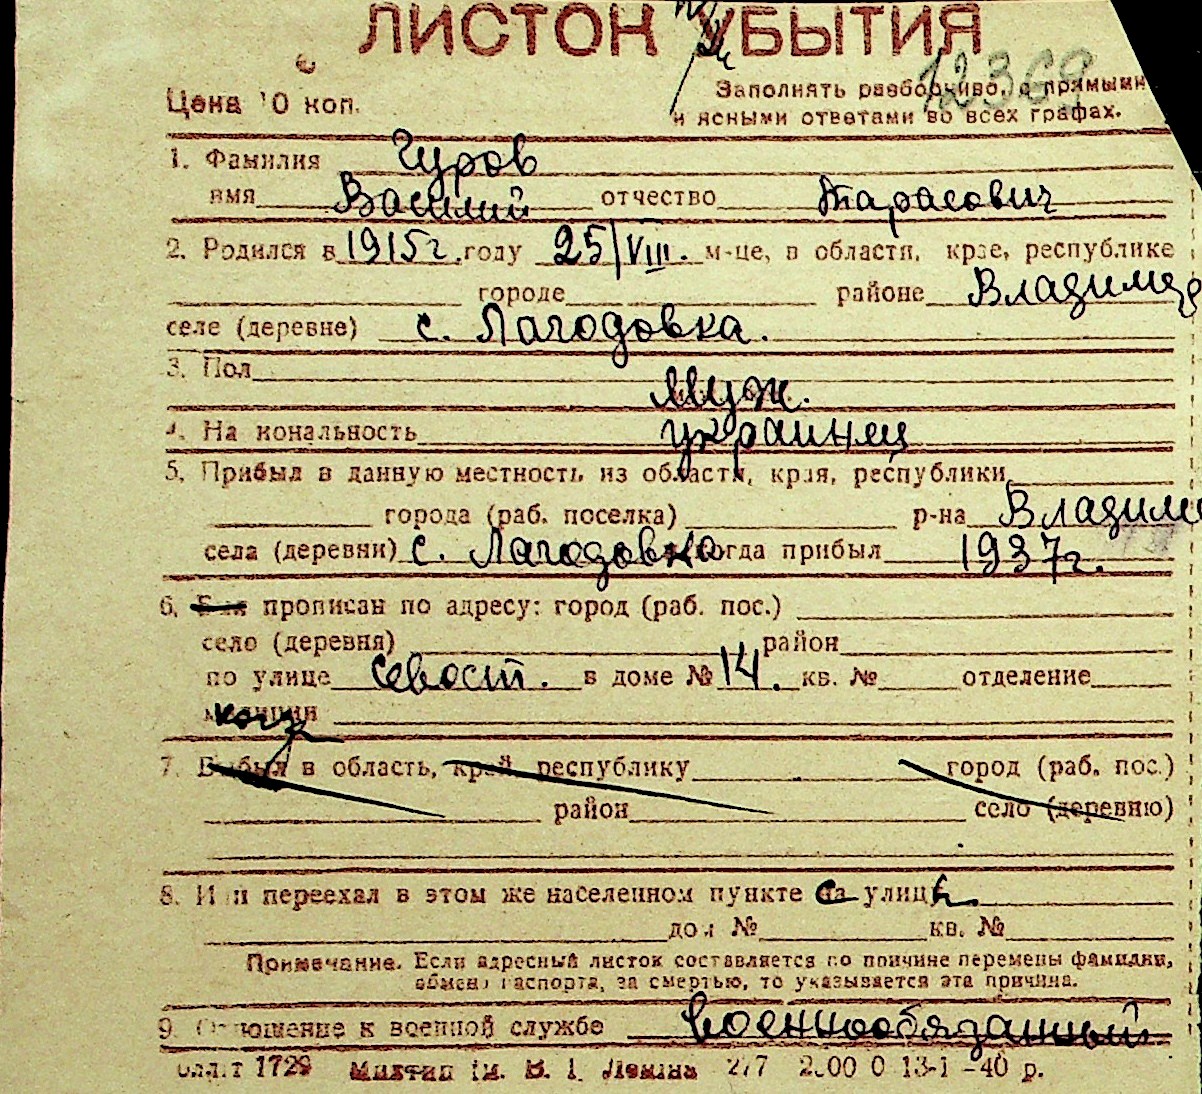 ЛИСТОК УБЫТИЯ
12369
Цена 10 коп.
Заполнять разборчиво, с прямыми
и ясными ответами во всех графах.
1. Фамилия Гуров
имя Василий отчество Тарасович
2. Родился в 1915 г. году 25/VIII. м-це, в области, крае, республике
городе районе Владимир
селе (деревне) с. Лагодовка.
3. Пол муж.
4. Национальность украинец
5. Прибыл в данную местность из области, края, республики
города (раб. поселка) р-на Владими
села (деревни) с. Лагодовка когда прибыл 1937 г.
6. прописан по адресу: город (раб. пос.)
село (деревня) район
по улице Севаст. в доме № 14. кв. № отделение
милиции
7. Выбыл в область, край, республику город (раб. пос.)
район село (деревню)
8. Или переехал в этом же населенном пункте на улицу
дом № кв. №
Примечание. Если адресный листок составляется по причине перемены фамилии,
обмена паспорта, за смертью, то указывается эта причина.
9. Отношение к военной службе военнообязанный
1729 им. В. И. Ленина 13-I-40 р.